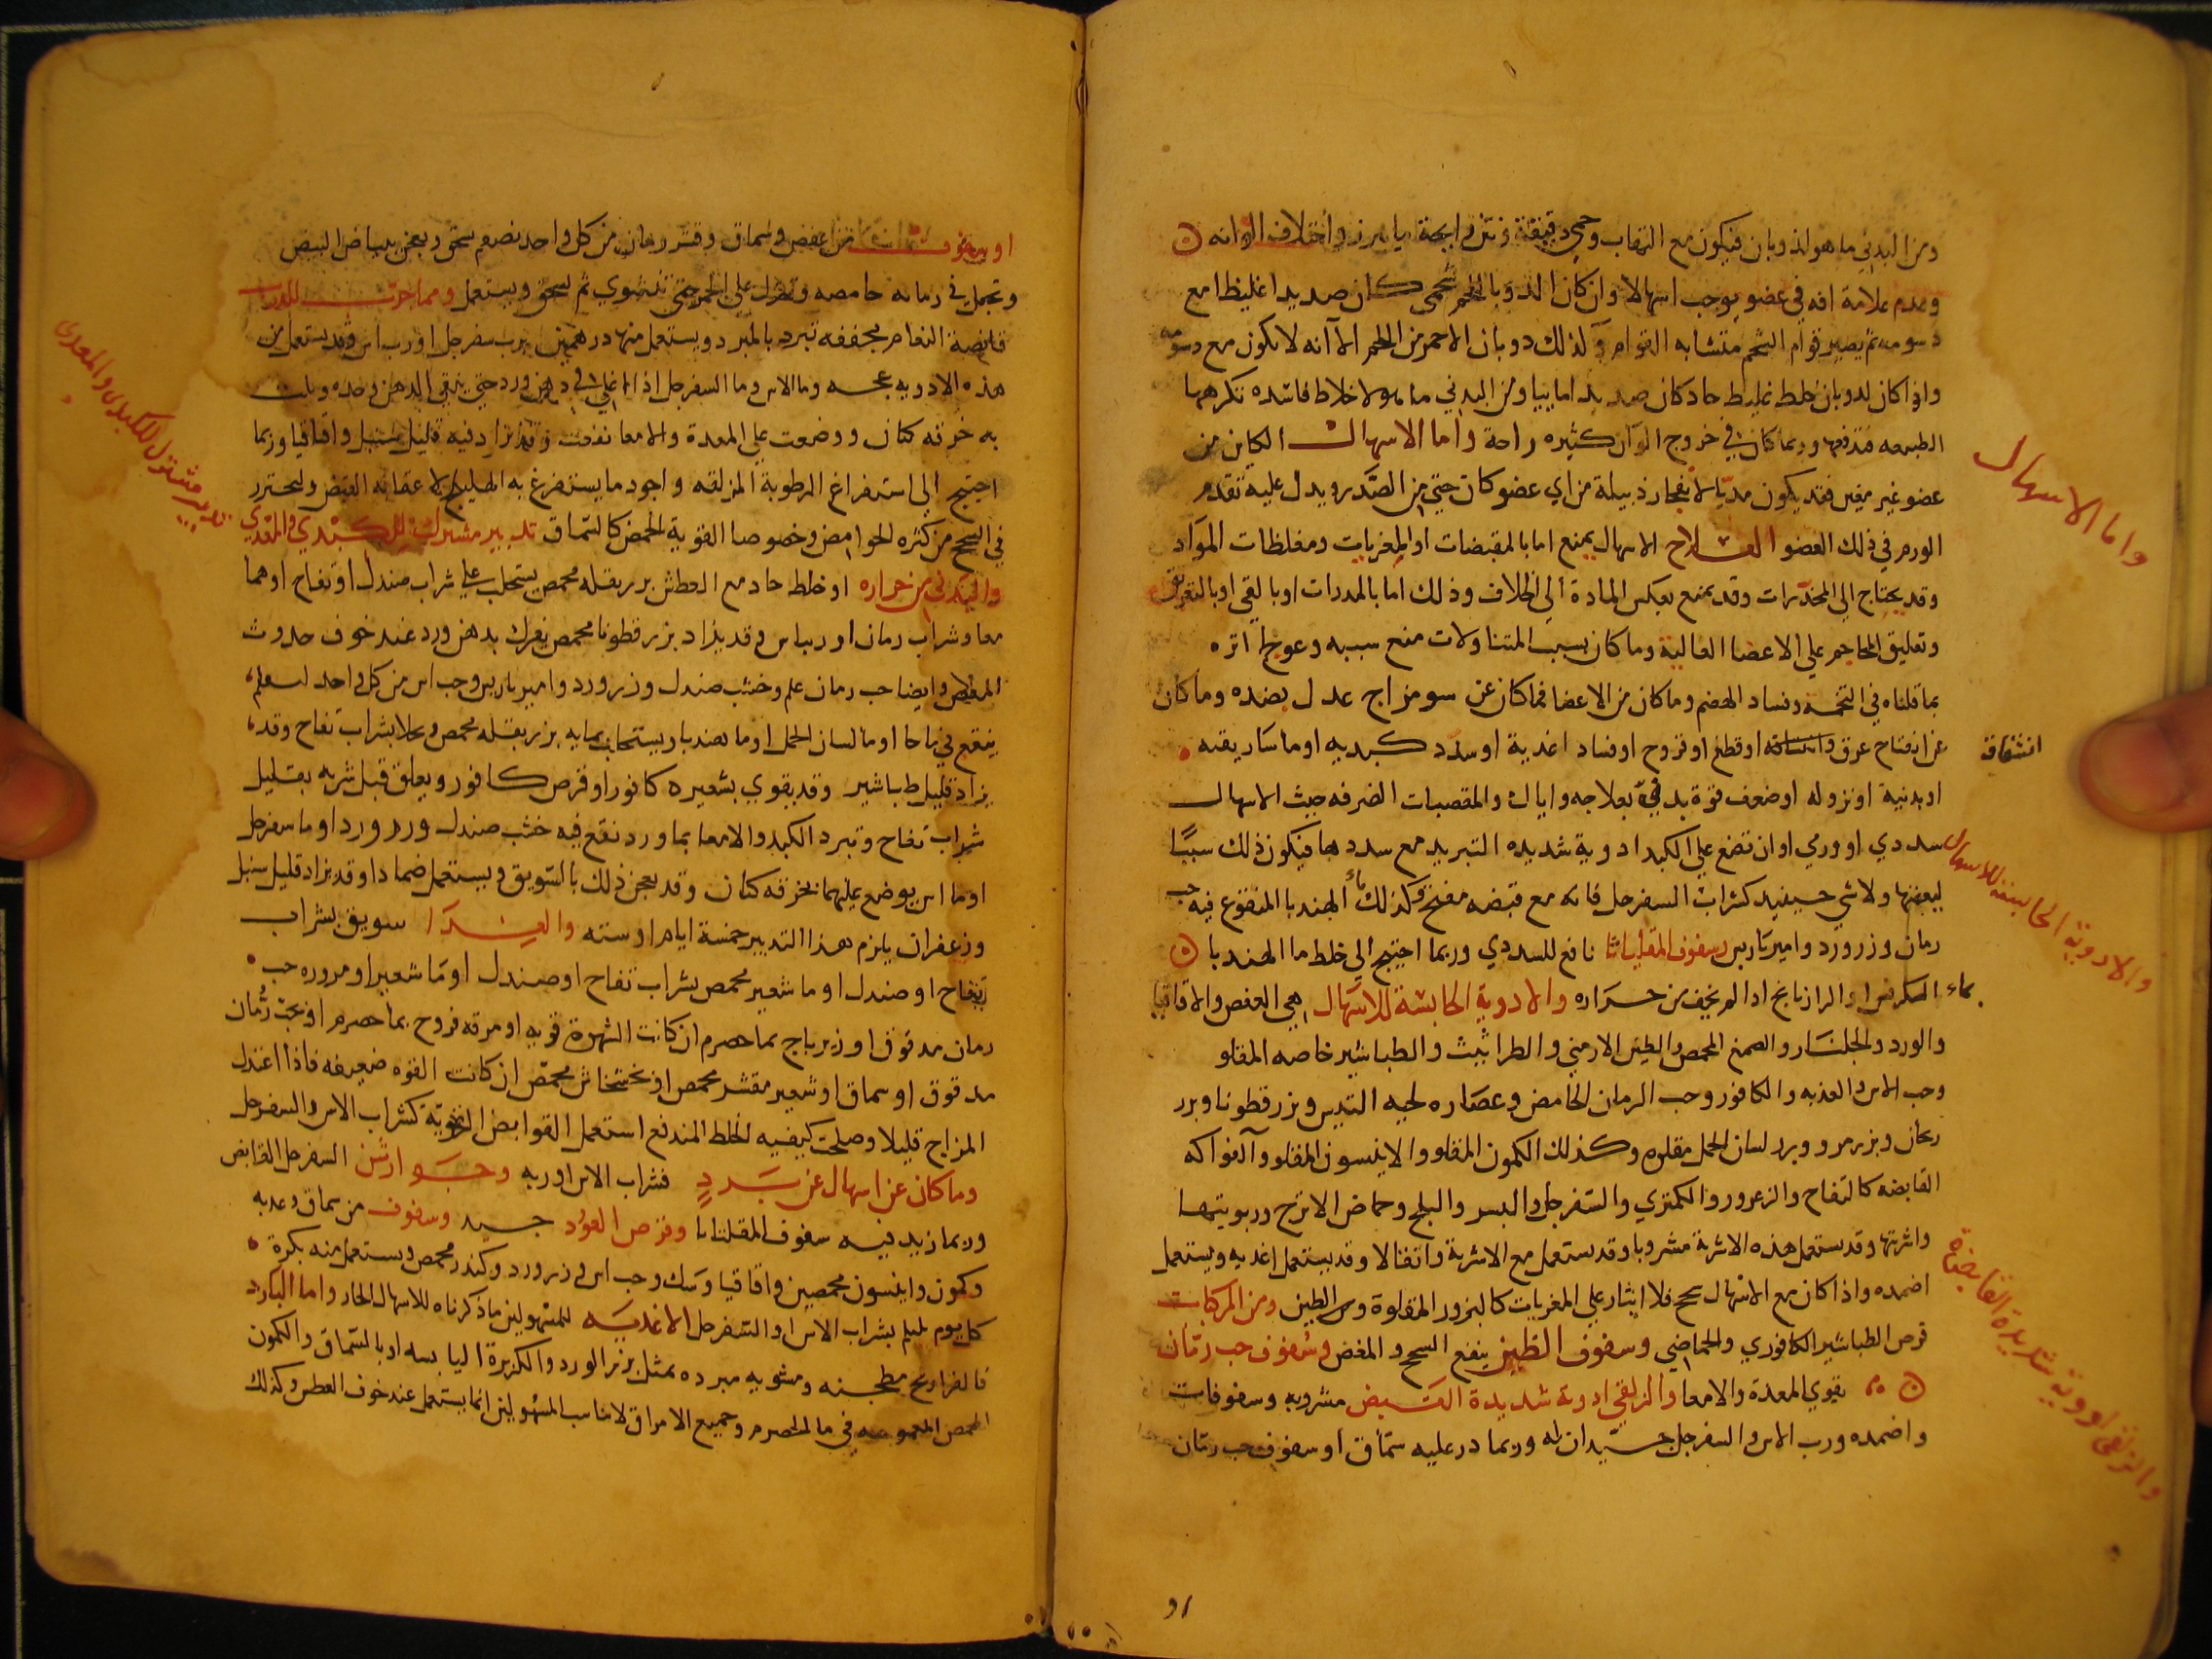 ومن البدني ما هو لذوبان فيكون مع التهاب وحمى دقيقة ونتن رايحة ما يبرز واختلاف الوانه
وعدم علامة افه في عضو يوجب اسهالا وان كان الذوبا لحم شحمى كان صديدا غليظا مع
دسومه ثم يصير قوام الشحم متشابه القوام وكذلك ذوبان الاحمر من اللحم الا انه لا يكون مع دسومه
واذا كان لذوبان خلط غليظ حاد كان صديد اماييا ومن البدني ما هو لاخلاط فاسده تكرهها
الطبيعه فتدفعها وربما كان في خروج الوان كثيره راحة واما الاسهال الكاين من
عضو غير معين فقد يكون مديا لانفجار دبيلة من اي عضو كان حتى من الصدر ويدل عليه تقدم
الورم في ذلك العضو العلاج الاسهال يمنع اما بالمقبضات او المغريات ومغلظات المواد
وقد يحتاج الى المخدرات وقد يمنع بعكس المادة الى الخلاف وذلك اما بالمدرات او بالقي او بالتعريق
وتعليق المحاجم على الاعضا العالية وما كان بسبب المتناولات منع سببه وعولج اثره
بما قلناه في التخمه وفساد الهضم وما كان من الاعضا فما كان عن سو مزاج عدل بضده وما كان
عن انفتاح عرق وانشقاقه او قطع او قروح او فساد اغدية او سدد كبديه او ماساريقيه
او بدنية او نزوله او ضعف قوة بدني بعلاجه واياك والمقبضات الصرفه حيث الاسهال
سددي او ورمي او ان تضع على الكبد ادوية شديده التبريد مع سددها فيكون ذلك سببا
لبعضها ولا شي حينيد كشراب السفرجل فانه مع قبضه مفتح وكذلك ماء الهندبا المنقوع فيه حب
رمان وزرورد وامير باريس وسفوف المقلياثا نافع للسددي وربما احتيج الى خلط ما الهندبا
بماء الكرفس او الرازيانج اذا لم يخف من حراره والادوية الحابسة للاسهال هي العفص والاقاقيا
والورد والجلنار والصمغ المحمص والطين الارمني والطراثيث والطباشير خاصه المقلو
وحب الاس والعذبه والكافور وحب الرمان الحامض وعصاره لحيه التيس وبزر قطونا وبزر
ريحان وبزر مرو وبزر لسان الحمل مقلوه وكذلك الكمون المقلو والانيسون المقلو والفواكه
القابضه كالتفاح والزعرور والكمثري والسفرجل والبسر والبلح وحماض الاترج وربوبيتها
واشربتها وقد يستعمل هذه الاشربة مشروبا وقد يستعمل مع الاشربة واتفالا وقد يستعمل اغديه ويستعمل
اضمده واذا كان مع الاسهال سحج فلا ايثار على المغريات كالبزور المقلوة وس الطين ومن المركبات
قرص الطباشير الكافوري والحماضي وسفوف الطين ينفع السحج والمغص وسفوف حب رمان
يقوي المعدة والامعا والزلقي ادوية شديدة القبض مشروبه وسفوفات
واضمده ورب الاس والسفرجل جيدان له وربما در عليه سماق او سفوف حب رمان
واما الاسهال
انشقاق
والادوية الحابسة للاسهال
والزلقى ادوية شديدة القابضة
او سفوف من عفص وسماق وقشر رمان من كل واحد نصف يسحق ويعجن ببياض البيض
وتجعل في رمانه حامصه وتطرك على الجمر حتى تنشوي ثم يسحق ويستعمل ومما جرب للذرب
قابضة النعام مجففه تبرد بالمبرد ويستعمل منها درهمين برب سفرجل او رب اس وقد يستعمل من
هذه الادويه عجه وما الاس وما السفرجل اذا اغلي في دهن ورد حتى يبقى الدهن وحده وبلت
به خرقه كتان ووضعت على المعدة والامعا نفعت وقد يزاد فيه قليل سنبل واقاقيا وربما
احتيج الى استفراغ الرطوبة المزلقه واجود ما يستفرغ به الهليلج لاعقابه القبض وليحترز
في السحج من كثره الحوامض وخصوصا القوية الحمض كالسماق تدبير مشترك للكبدي والمعدي
والبدني من حراره او خلط حاد مع العطش بزر بقله محمص يستحلب على شراب صندل او تفاح او هما
معا وشراب رمان او ريباس وقد يزاد بزر قطونا محمص يفرك بدهن ورد عند خوف حدوث
المغص وايضا حب رمان علم وخشب صندل وزرورد وامير باريس وحب اس من كل واحد
ينقع في ما حا او ما لسان الحمل او ما بصندبا ويستحلب بمايه بزر بقله محمص ويحلا بشراب تفاح وقد
يزاد قليل طباشير وقد يقوي بشعيره كافور او قرص كافور ويعلق قبل شربه بقليل
شراب تفاح وتبرد الكبد والامعا بماورد نقع فيه خشب صندل وورد او ما سفرجل
او ما اس يوضع عليهما بخرقه كتان وقد يعجن ذلك بالسويق ويستعمل ضمادا وقد يزاد قليل سنبل
وزعفران يلزم هذا التدبير خمسة ايام او سته والغذا سويق بشراب
تفاح او صندل او ما شعير محمص بشراب تفاح او صندل او ما شعير او مروره حب
رمان مدقوق او زيرباج بما حصرم ان كانت الشهوة قويه او مرقه فروج بما حصرم او بحب رمان
مدقوق او سماق او شعير مقشر محمص او خشخاش محمص ان كانت القوه ضعيفه فاذا اعتدل
المزاج قليلا وصلحت كيفيه الخلط المندفع استعمل القوابض القوية كشراب الاس والسفرجل
وما كان عن اسهال عن برد فشراب الاس او ربه وجوارشن السفرجل القابض
وربما زيد فيه سفوف المقلياثا وقرص العود جيد وسفوف من سماق وعدبه
وكمون وانيسون محمصين واقاقيا وسك وحب اس وزرورد وكندر محمص ويستعمل منه بكرة
كل يوم بشراب الاس او السفرجل الاغديه للمسهولين ما ذكرناه للاسهال الحار واما البارد
فالفراريج مطجنه ومشويه مبرده بمثل بزر الورد والكزبرة اليابسه او بالسماق والكمون
المحمص المغموسه في ما الحصرم وجميع الامراق لا تناسب المسهولين انما يستعمل عند خوف العطش وكذلك
تدبير مشترك للكبدى والمعدى